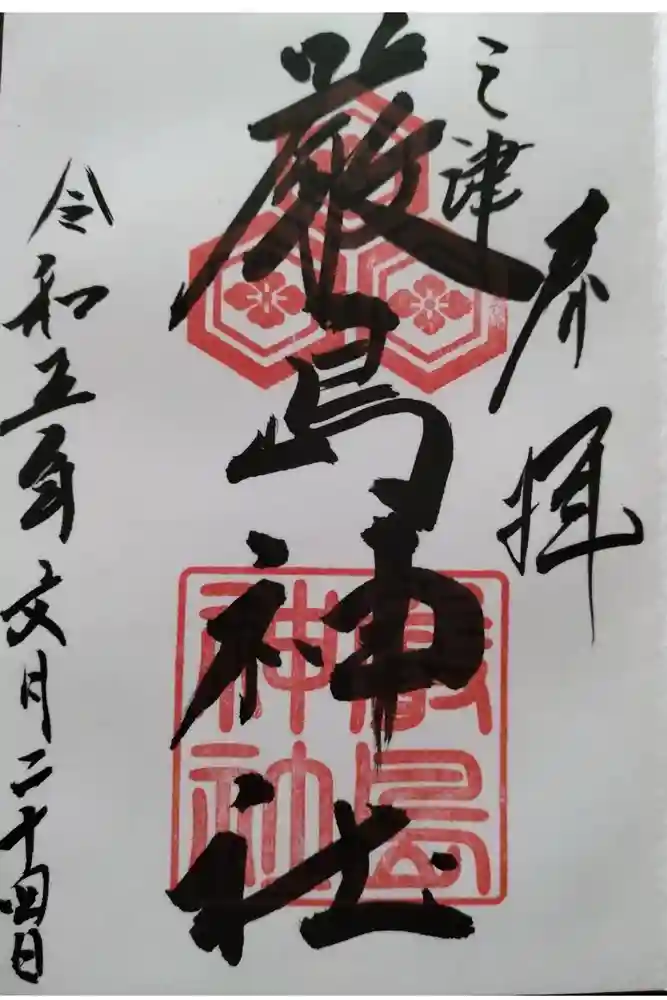 奉拝
三津
厳島神社
令和五年文月二十四日
嚴島
神社